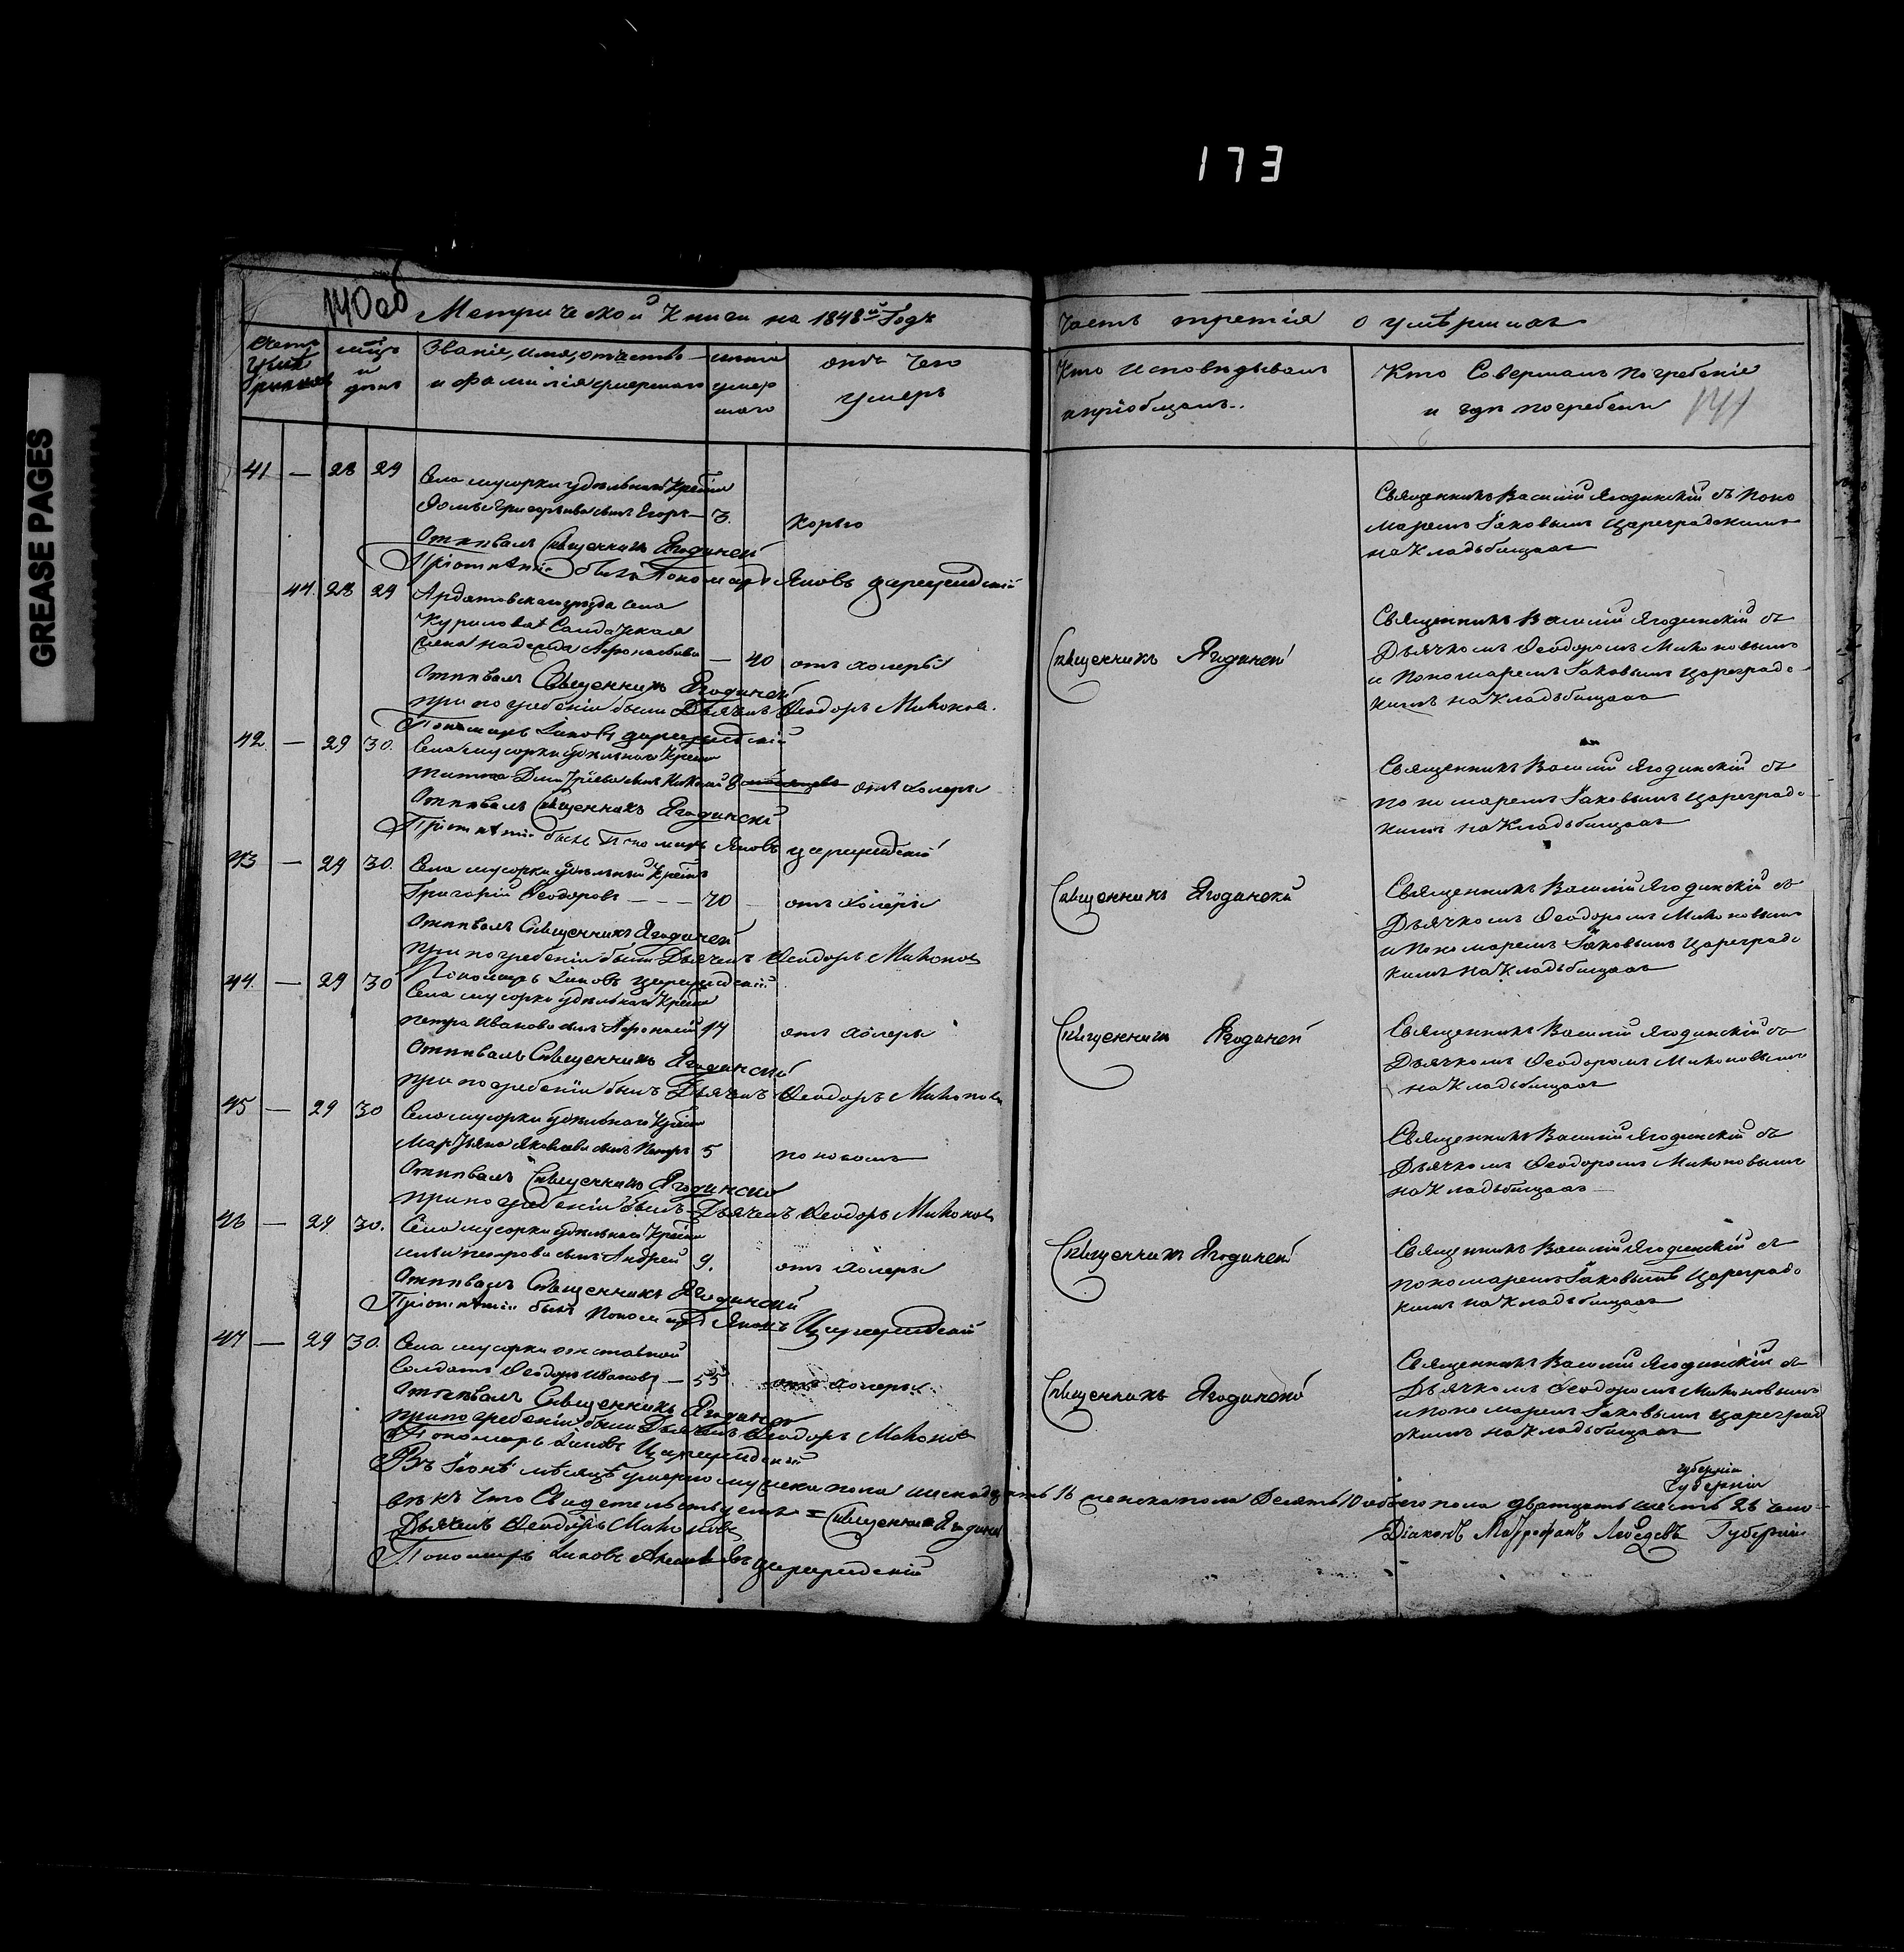 GREASE PAGES
173
140об
Метрической Книги на 1848й Годъ
Часть третія о умѣршихъ
Счетъ умершихъ
мцъ и день
Званіе, имя, отчество
и фамилія умершаго
лѣта умершаго
отъ чего
умеръ
Кто исповѣдывалъ
и пріобщалъ
Кто Совершалъ погребеніе
и гдѣ погребены
141
41 — 28 29
Села мусорки удѣльнаго Крестьянина
Григорьева сынъ Егоръ — 3. Корью
Отпѣвалъ Священникъ Ягодинскій
При отпѣтіи былъ Пономарь Яковъ Цареградскій
Священникъ Василій Ягодинскій съ Поно
маремъ Іаковымъ Цареградскимъ
на Кладьбищахъ
44. 28 29
Ардатовскаго уѣзда села
Курилова Солдатская
жена надежда — 40 отъ холеры
Отпѣвалъ Священникъ Ягодинскій
при погребеніи были Дьячекъ Ѳеодоръ Миконовъ
Пономарь Іаковъ Цареградскій
Священникъ Ягодинскій
Священникъ Василій Ягодинскій съ
Дьячкомъ Ѳеодоромъ Миконовымъ
и Пономаремъ Іаковымъ Цареград
скимъ на Кладьбищахъ
42. — 29 30.
Села мусорки удѣльнаго Крестьянина
Дмитріева сынъ Николай 8 отъ холеры
Отпѣвалъ Священникъ Ягодинскій
При отпѣтіи былъ Пономарь Яковъ Цареградскій
Священникъ Василій Ягодинскій съ
пономаремъ Іаковымъ Цареград
скимъ на Кладьбищахъ
43 — 29 30.
Села мусорки удѣльный Крестьянинъ
Григорій Ѳеодоровъ — — — 70 — отъ холеры
Отпѣвалъ Священникъ Ягодинскій
при погребеніи были Дьячекъ Ѳеодоръ Миконовъ
Пономарь Іаковъ Цареградскій
Священникъ Ягодинскій
Священникъ Василій Ягодинскій съ
Дьячкомъ Ѳеодоромъ Миконовымъ
и Пономаремъ Іаковымъ Цареград
скимъ на Кладьбищахъ
44. — 29 30
Села мусорки удѣльнаго Крестьянина
петра Иванова сынъ Афонасій 14 отъ холеры
Отпѣвалъ Священникъ Ягодинскій
при погребеніи былъ Дьячекъ Ѳеодоръ Миконовъ
Священникъ Ягодинскій
Священникъ Василій Ягодинскій съ
Дьячкомъ Ѳеодоромъ Миконовымъ
на Кладьбищахъ
45 — 29 30
Села мусорки удѣльнаго Крестьянина
Яковлева сынъ Петръ 5 поносомъ
Отпѣвалъ Священникъ Ягодинскій
при погребеніи былъ Дьячекъ Ѳеодоръ Миконовъ
Священникъ Василій Ягодинскій съ
Дьячкомъ Ѳеодоромъ Миконовымъ
на Кладьбищахъ
46 — 29 30.
Села мусорки удѣльнаго Крестьянина
ильи петрова сынъ Андрей 9. отъ холеры
Отпѣвалъ Священникъ Ягодинскій
При отпѣтіи былъ Пономарь Яковъ Цареградскій
Священникъ Ягодинскій
Священникъ Василій Ягодинскій съ
пономаремъ Іаковымъ Цареград
скимъ на Кладьбищахъ
47 — 29 30.
Села мусорки отставной
Солдатъ Ѳеодоръ Ивановъ — 55 отъ холеры
Отпѣвалъ Священникъ Ягодинскій
при погребеніи были Дьячекъ Ѳеодоръ Миконовъ
Пономарь Іаковъ Цареградскій
Священникъ Ягодинскій
Священникъ Василій Ягодинскій съ
Дьячкомъ Ѳеодоромъ Миконовымъ
и пономаремъ Іаковымъ Цареград
скимъ на Кладьбищахъ
Въ Іюнѣ мѣсяцѣ умерло мужеска пола шеснадцать 16 женска пола Десять 10 обоего пола двадцать шесть 26 чело
вѣкъ Что Свидетельствуемъ = Священникъ Ягодинскій
Дьячекъ Ѳеодоръ Миконовъ
Пономарь Іаковъ Цареградскій
губерніи
Губерніи
Діаконъ Митрофанъ Лебедевъ Губерніи